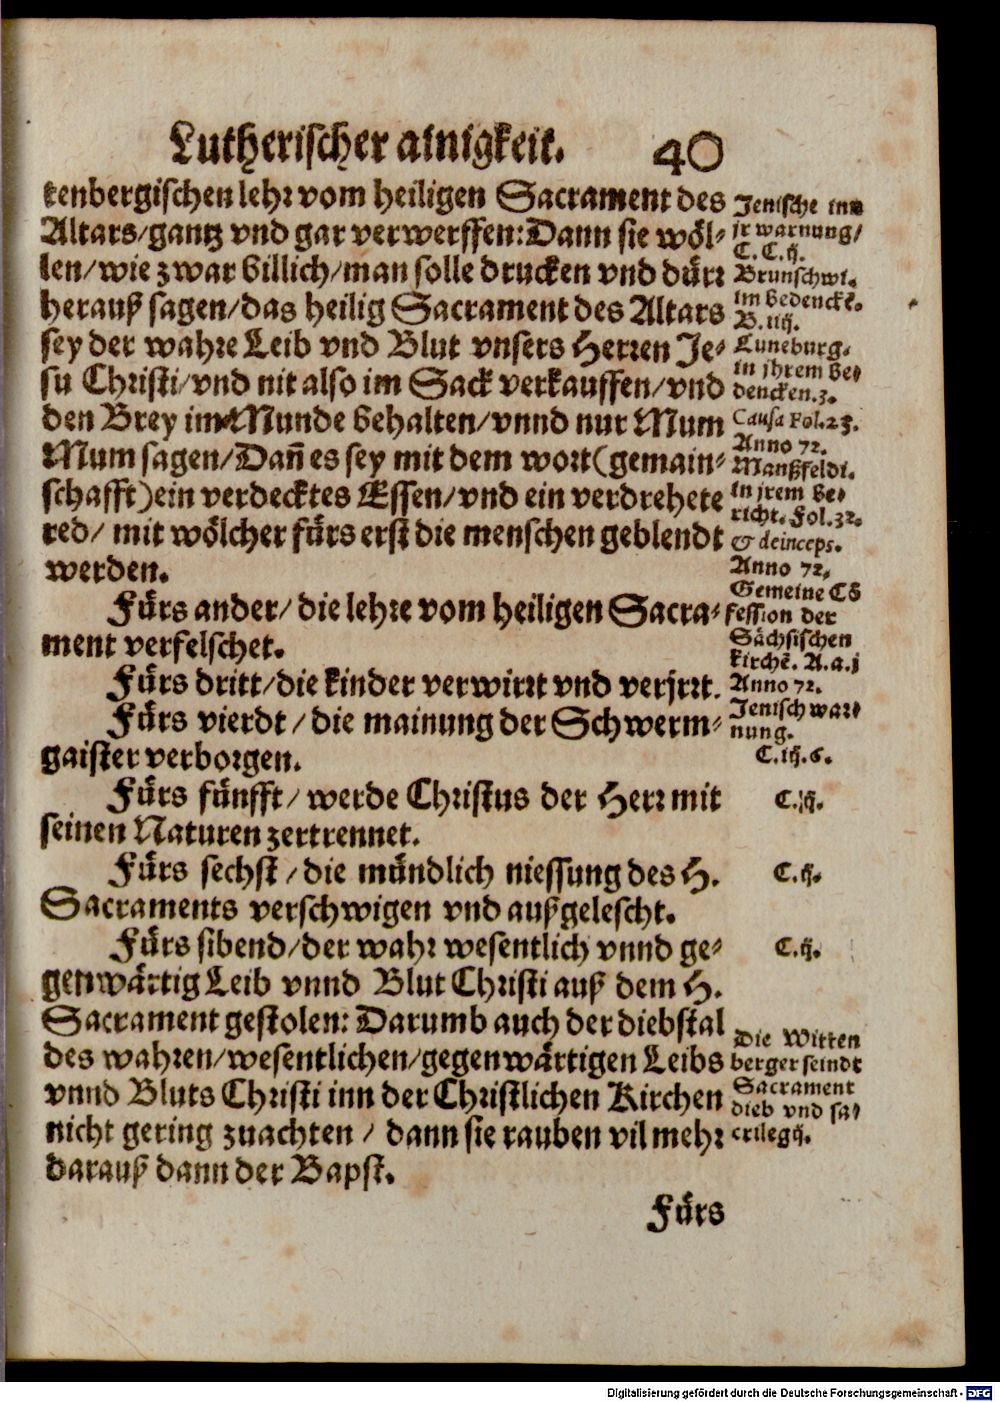 Lutherischer ainigkeit. 40
tenbergischen lehr vom heiligen Sacrament des
Altars/gantz vnd gar verwerffen: Dann sie wöl-
len/wie zwar billich/man solle drucken vnd dürr
herauß sagen/das heilig Sacrament des Altars
sey der wahre Leib vnd Blut vnsers Herren Je-
su Christi/vnd nit also im Sack verkauffen/vnd
den Brey im Munde behalten/vnnd nur Mum
Mum sagen/Dañ es sey mit dem wort (gemain-
schafft) ein verdecktes Essen/vnd ein verdrehete
red/ mit wölcher fürs erst die menschen geblendt
werden.
Fürs ander/ die lehre vom heiligen Sacra-
ment verfelschet.
Fürs dritt/die kinder verwirrt vnd verjrrt.
Fürs vierdt/die mainung der Schwerm-
gaister verborgen.
Fürs fünfft/ werde Christus der Herr mit
seinen Naturen zertrennet.
Fürs sechst/die mündlich niessung des H.
Sacraments verschwigen vnd außgelescht.
Fürs sibend/der wahr wesentlich vnnd ge-
genwärtig Leib vnnd Blut Christi auß dem H.
Sacrament gestolen: Darumb auch der diebstal
des wahren/wesentlichen/gegenwärtigen Leibs
vnnd Bluts Christi inn der Christlichen Kirchen
nicht gering zuachten/ dann sie rauben vil mehr
darauß dann der Bapst.
Fürs
Jenische inn
jr warnung/
C. C.ij.
Brunschwi.
im bedencke.
B.iiij.
Luneburg.
in jhrem be-
dencken.3.
Causa Fol.25.
Anno 72.
Manßfeldi.
in jrem be-
richt. Fol.32.
& deinceps.
Anno 72.
Gemeine Cõ
fession der
Sächsischen
kirchē. A.a.j
Anno 72.
Jenisch war-
nung.
C.iij.6.
C.iij.
C.ij.
C.ij.
Die Witten
berger seindt
Sacrament
dieb vnd sa-
crilegij.
Digitalisierung gefördert durch die Deutsche Forschungsgemeinschaft - DFG